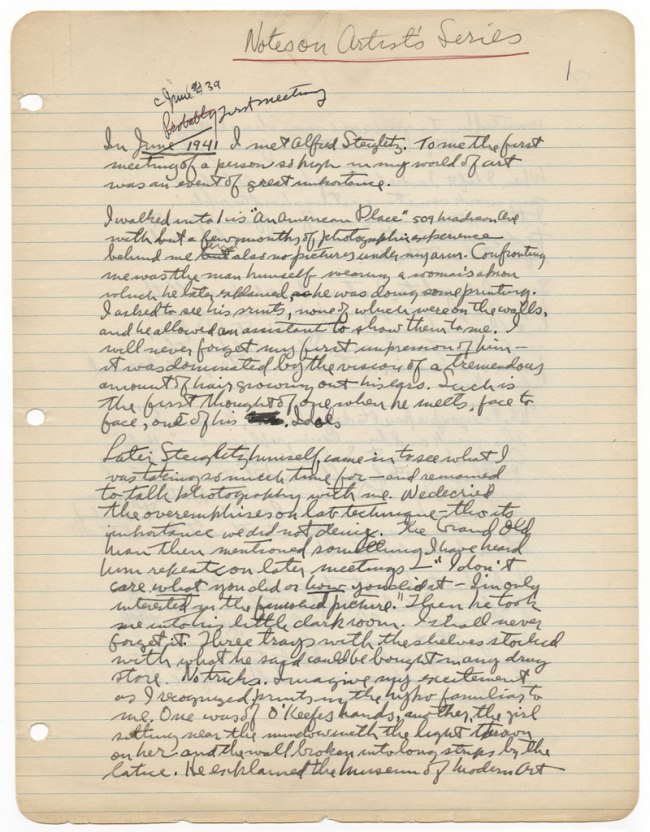 Notes on Artist's Series
1
c June 39
Probably first meeting
In June 1941 I met Alfred Steiglitz. To me the first
meeting of a person so high in my world of art
was an event of great importance.
I walked into his "An American Place" 509 Madison Ave
with but a few months of photographic experience
behind me but also no pictures under my arm. Confronting
me was the man himself wearing a woman's apron
which he later explained, as he was doing some printing.
I asked to see his prints, none of which were on the walls,
and he allowed an assistant to show them to me. I
will never forget my first impression of him –
it was dominated by the vision of a tremendous
amount of hair growing out his ears. Such is
the first thought of one when he meets, face to
face, one of his Idols
Later Steiglitz himself, came in to see what I
was taking so much time for – and remained
to talk photography with me. We decried
the overemphises on lab technique – tho its
importance we did not denie. The Grand Old
Man then mentioned something I have heard
him repeat on later meetings – "I don't
care what you did or how you did it – I'm only
interested in the finished picture." Then he took
me into his little darkroom. I shall never
forget it. Three trays with the shelves stocked
with what he said could be bought in any drug
store. No tricks. Imagine my excitement
as I recognized prints in the hypo familiar to
me. One was of O'Keefe's hands, another, the girl
sitting near the window with the light thrown
on her and the wall broken into long strips by the
latice. He explained the Museum of Modern Art